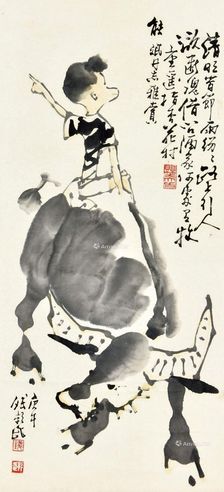 清明時節雨纷 路上行人
欲斷魂借问酒家何處有牧
童遥指杏花村
同志雅賞
庚午